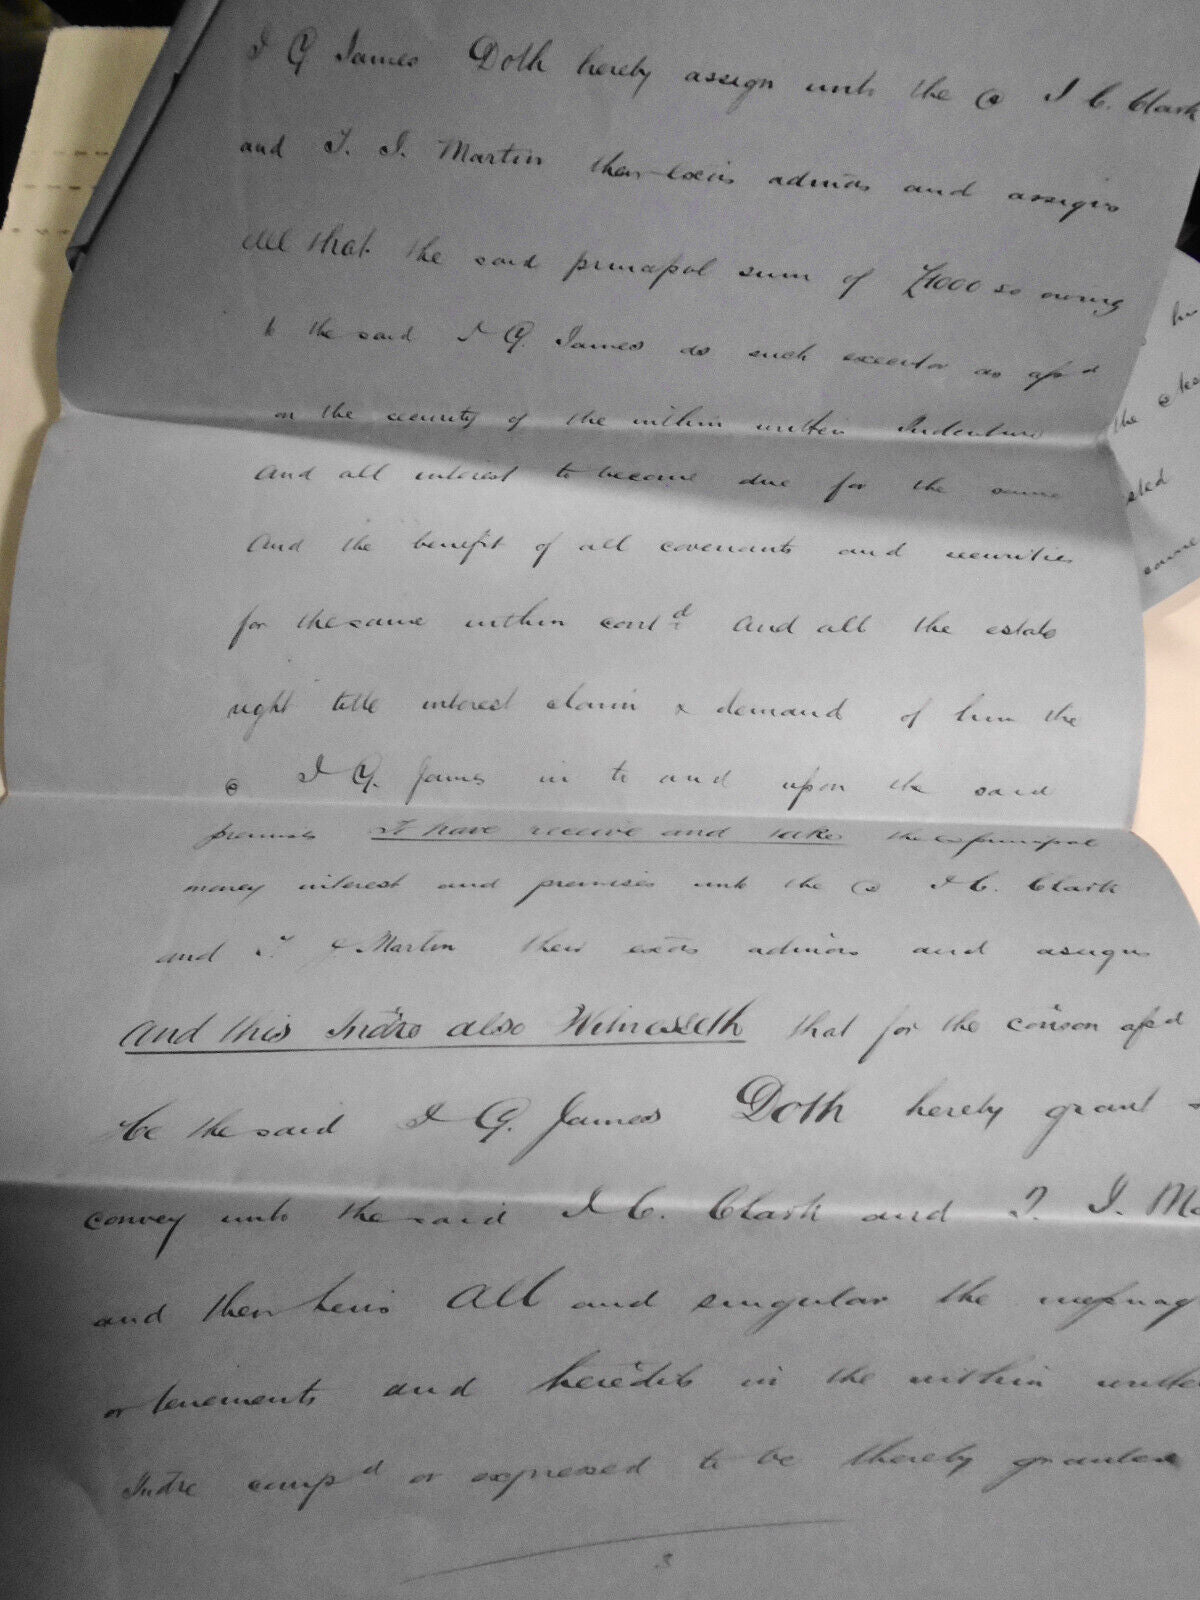 J G James Doth hereby assign unto the s J C. Clark
and T. J. Martin their exōrs admōrs and assigns
all that the said principal sum of £1000 so owing
to the said J G. James as such executor as afsd
on the security of the within written Indenture
And all interest to become due for the same
And the benefit of all covenants and securities
for the same within contd And all the estate
right title interest claim & demand of him the
s J G. James in to and upon the said
premises To have receive and take the s principal
money interest and premises unto the s J C. Clark
and T. J Martin their exōrs admōrs and assigns
And this Indre also Witnesseth that for the conson afsd
He the said J G. James Doth hereby grant
convey unto the said J C. Clark and T. J. Ma
and their heirs All and singular the messuag
or tenements and heredits in the within writte
Indre compd or expressed to be thereby granted
3
the s
sted
same